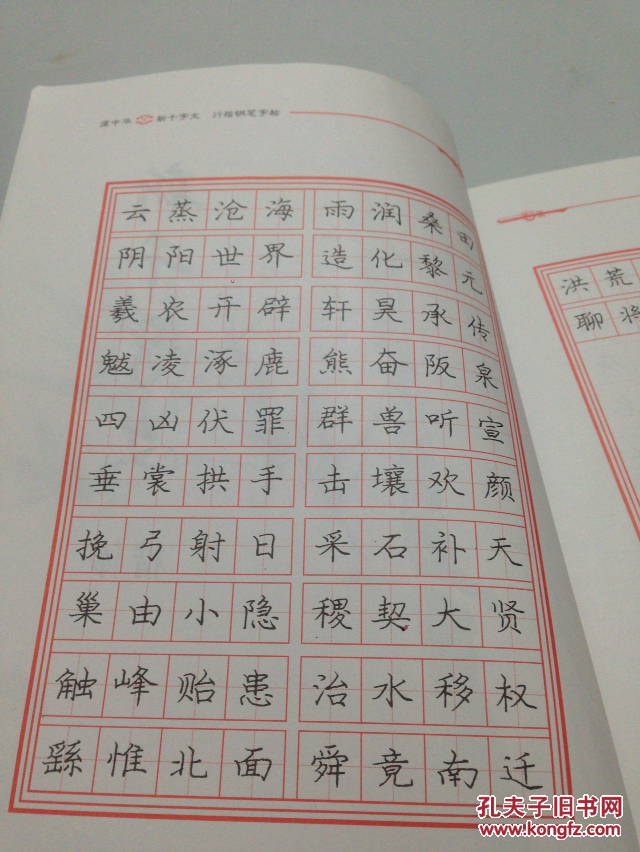 庞中华 新千字文 行楷钢笔字帖
云蒸沧海 雨润桑田
阴阳世界 造化黎元
羲农开辟 轩昊承传
魃凌涿鹿 熊奋阪泉
四凶伏罪 群兽听宣
垂裳拱手 击壤欢颜
挽弓射日 采石补天
巢由小隐 稷契大贤
触峰贻患 治水移权
繇惟北面 舜竟南迁
洪荒
聊将
孔夫子旧书网
www.kongfz.com